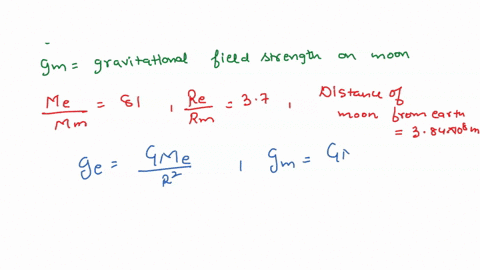 gm = gravitational field strength on moon
Me/Mm = 81 , Re/Rm = 3.7 , Distance of
moon from earth
= 3.84x10⁸m
ge = GMe/R² , gm = GM